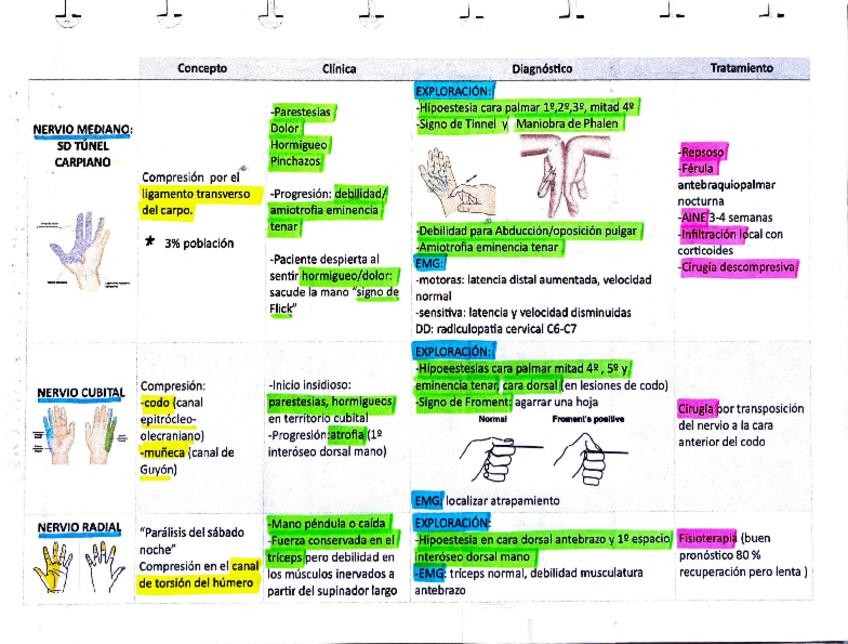 Concepto
Clínica
Diagnóstico
Tratamiento
NERVIO MEDIANO:
SD TÚNEL
CARPIANO
Compresión por el
ligamento transverso
del carpo.
* 3% población
-Parestesias
Dolor
Hormigueo
Pinchazos
-Progresión: debilidad/
amiotrofia eminencia
tenar
-Paciente despierta al
sentir hormigueo/dolor:
sacude la mano "signo de
Flick"
EXPLORACIÓN:
-Hipoestesia cara palmar 1º,2º,3º, mitad 4º
-Signo de Tinnel y Maniobra de Phalen
-Debilidad para Abducción/oposición pulgar
-Amiotrofia eminencia tenar
EMG:
-motoras: latencia distal aumentada, velocidad
normal
-sensitiva: latencia y velocidad disminuidas
DD: radiculopatia cervical C6-C7
-Repsoso
-Férula
antebraquiopalmar
nocturna
-AINE 3-4 semanas
-Infiltración local con
corticoides
-Cirugía descompresiva
NERVIO CUBITAL
Compresión:
-codo (canal
epitrócleo-
olecraniano)
-muñeca (canal de
Guyón)
-Inicio insidioso:
parestesias, hormigueos
en territorio cubital
-Progresión:atrofia (1º
interóseo dorsal mano)
EXPLORACIÓN:
-Hipoeestesias cara palmar mitad 4º , 5º y
eminencia tenar, cara dorsal (en lesiones de codo)
-Signo de Froment: agarrar una hoja
Normal
Froment's positive
EMG: localizar atrapamiento
Cirugía por transposición
del nervio a la cara
anterior del codo
NERVIO RADIAL
"Parálisis del sábado
noche"
Compresión en el canal
de torsión del húmero
-Mano péndula o caída
-Fuerza conservada en el
tríceps pero debilidad en
los músculos inervados a
partir del supinador largo
EXPLORACIÓN:
-Hipoestesia en cara dorsal antebrazo y 1º espacio
interóseo dorsal mano
-EMG: tríceps normal, debilidad musculatura
antebrazo
Fisioterapia (buen
pronóstico 80 %
recuperación pero lenta )